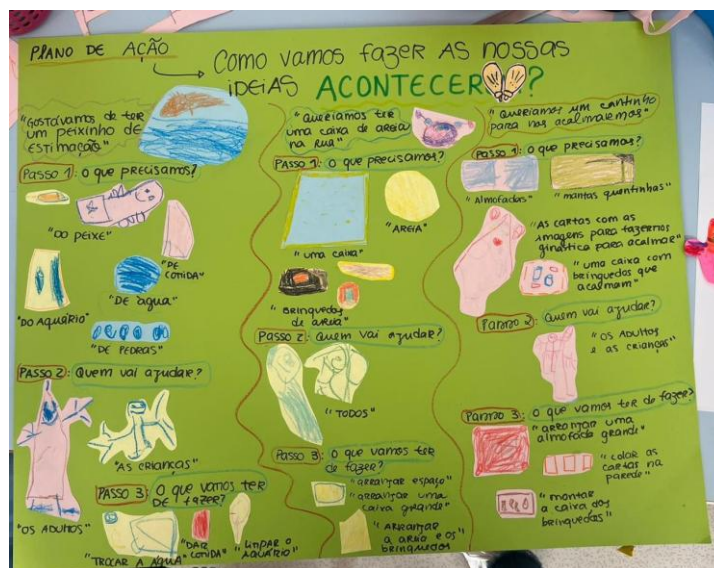 PLANO DE AÇÃO
Como vamos fazer as nossas
ideias ACONTECER ?
"GOSTÁVAMOS DE TER
UM PEIXINHO DE
ESTIMAÇÃO"
PASSO 1: O que precisamos?
"DO PEIXE"
"DE
COMIDA"
"DO AQUÁRIO"
"DE ÁGUA"
"DE PEDRAS"
PASSO 2: Quem vai ajudar?
"AS CRIANÇAS"
"OS ADULTOS"
PASSO 3: O que vamos TER
DE fazer?
"TROCAR A ÁGUA"
"DAR
COMIDA"
"LIMPAR O
AQUÁRIO"
"Queríamos ter
uma caixa de areia
na rua"
PASSO 1: O que precisamos?
"UMA CAIXA"
"AREIA"
"BRINQUEDOS
DE AREIA"
PASSO 2: Quem vai ajudar?
"TODOS"
PASSO 3: O que vamos TER
de fazer?
"arranjar espaço"
"arranjar uma
caixa grande"
"ARRANJAR
A areia e os
brinquedos
"Queríamos um cantinho
para nos acalmarmos"
PASSO 1: O que precisamos?
"Almofadas"
"mantas quentinhas"
"AS CARTAS com as
imagens para fazermos
ginástica para acalmar"
"uma caixa com
brinquedos que
acalmam"
2: Quem vai ajudar?
"OS ADULTOS
E AS CRIANÇAS"
3: O que vamos ter de fazer?
"arranjar uma
almofada grande"
"colar as
cartas na
parede"
"montar
a caixa dos
brinquedos"